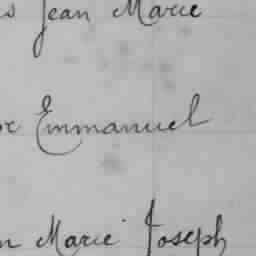 Jean Marie
Emmanuel
Marie Joseph